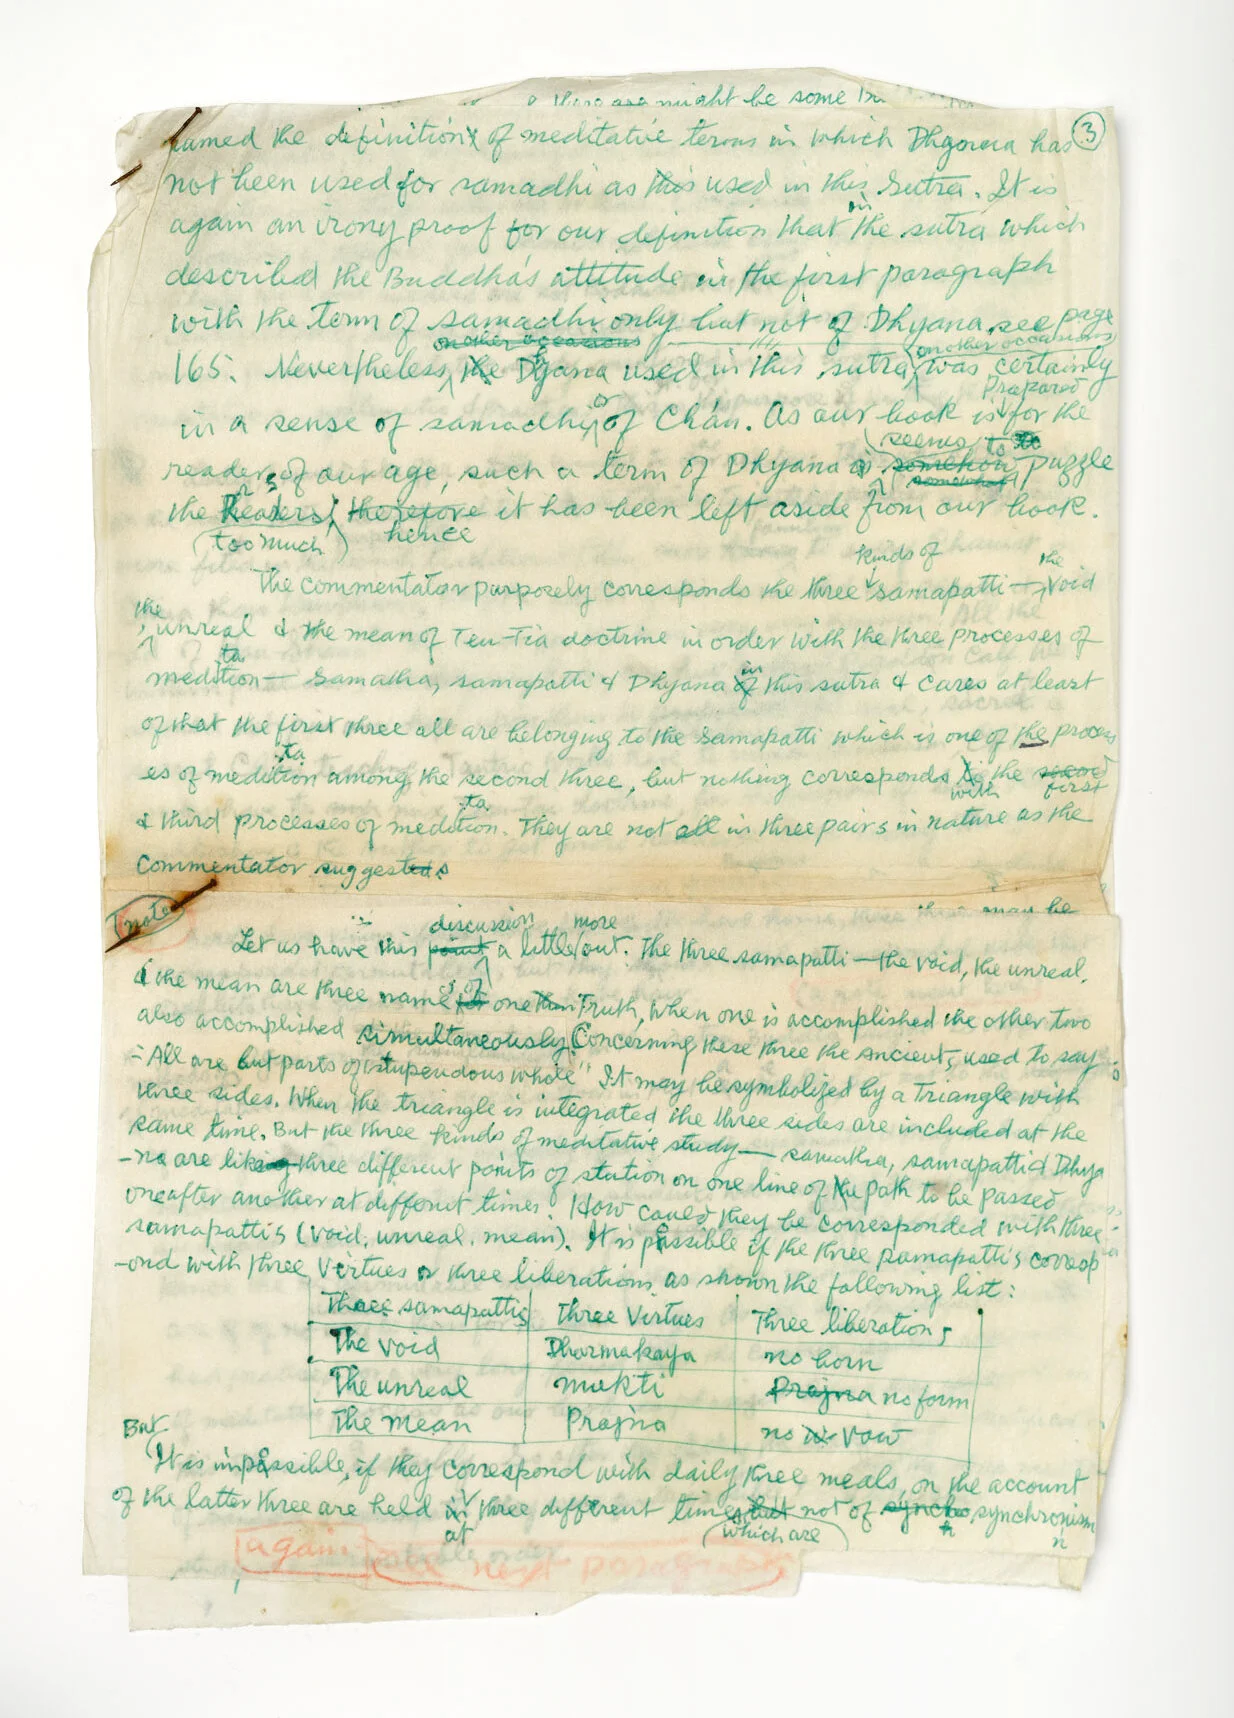 there are might be some
③
named the definition of meditative terms in which Dhyana has
not been used for samadhi as this used in this Sutra. It is
again an irony proof for our definition that in the sutra which
described the Buddha's attitude in the first paragraph
with the term of samadhi only but not of Dhyana, see page
on other occasions
another occasions
165. Nevertheless, the Dyana used in this sutra was certainly
in a sense of samadhi or of Chán. As our book is prepared for the
seems to
reader of our age, such a term of Dhyana somehow puzzle
somewhat
the Readers therefore it has been left aside from our book.
(too much) hence
kinds of the
The commentator purposely corresponds the three samapatti — void
the
unreal & the mean of Ten-Tia doctrine in order with the three processes of
ta
medition — Samatha, samapatti & Dhyana in this sutra & cares at least
of that the first three all are belonging to the samapatti which is one of the process
ta
es of medition among the second three, but nothing corresponds to the second
with first
ta
& third processes of medition. They are not all in three pairs in nature as the
Commentator suggested s
note
there may be
discussion more
Let us have this point a little out. The three samapatti — the void, the unreal,
& the mean are three names of one Truth, when one is accomplished the other two
also accomplished simultaneously. Concerning these three the Ancients used to say
"All are but parts of stupendous whole" It may be symbolized by a Triangle with
three sides. When the triangle is integrated the three sides are included at the
same time. But the three kinds of meditative study — samatha, samapatti & Dhya
-na are like three different points of station on one line of the path to be passed
one after another at differnt times. How could they be corresponded with three
samapattis (void, unreal, mean). It is possible if the three samapatti's corresp
-ond with three Virtues or three liberations, as shown the following list:
Three samapattis Three Virtues Three liberations
The void Dharmakaya no born
The unreal mukti Prajna no form
The mean Prajna no vow
But
It is impossible, if they correspond with daily three meals, on the account
of the latter three are held in three different times but not of synchro synchronism
at (which are) n
again see next paragraph